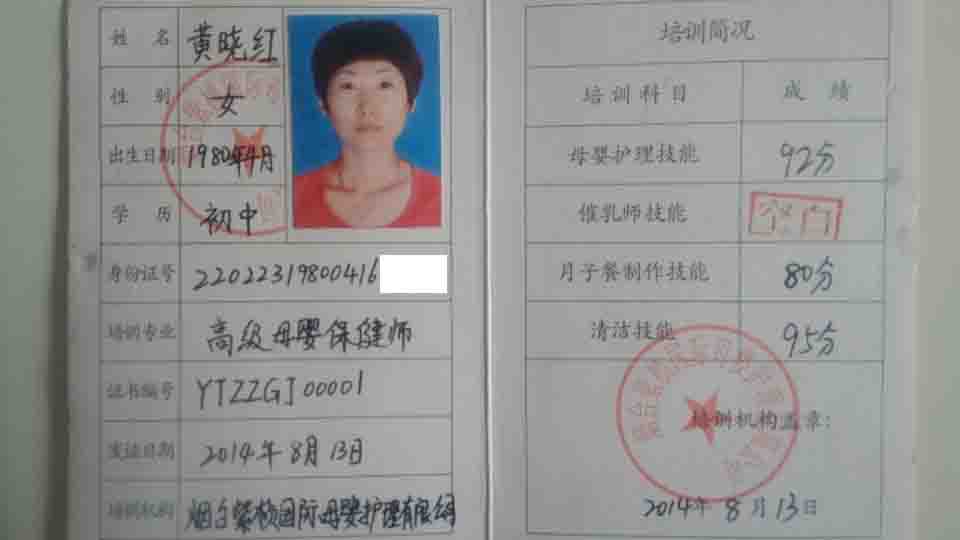 姓 名 黄晓红
性 别 女
出生日期 1980年4月
学 历 初中
身份证号 22022319800416
培训专业 高级母婴保健师
证书编号 YTZZGJ00001
发证日期 2014年8月13日
培训机构 烟台紫桢国际母婴护理有限公司
培训简况
培训科目 成 绩
母婴护理技能 92分
催乳师技能 空白
月子餐制作技能 80分
清洁技能 95分
培训机构盖章:
2014年8月13日